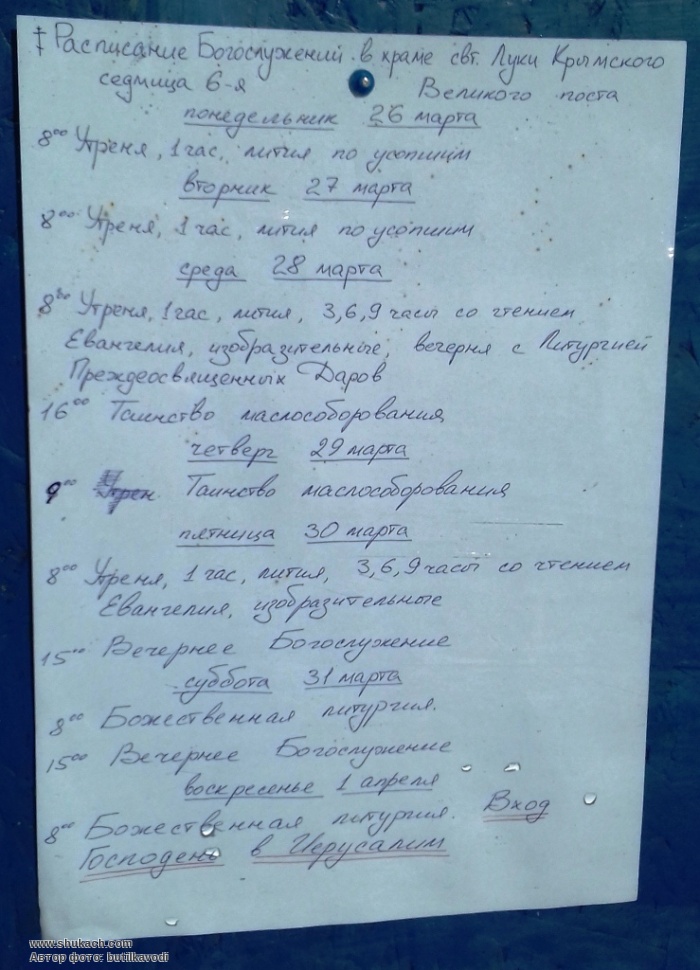 ‡ Расписание Богослужений в храме свт. Луки Крымского
седмица 6-я Великого поста
понедельник 26 марта
8⁰⁰ Утреня, 1 час, лития по усопшим
вторник 27 марта
8⁰⁰ Утреня, 1 час, лития по усопшим
среда 28 марта
8⁰⁰ Утреня, 1 час, лития, 3, 6, 9 часы со чтением
Евангелия, изобразительные, вечерня с Литургией
Преждеосвященных Даров
16⁰⁰ Таинство маслособорования
четверг 29 марта
9⁰⁰ Утрен Таинство маслособорования
пятница 30 марта
8⁰⁰ Утреня, 1 час, лития, 3, 6, 9 часы со чтением
Евангелия, изобразительные
15⁰⁰ Вечернее Богослужение
суббота 31 марта
8⁰⁰ Божественная литургия.
15⁰⁰ Вечернее Богослужение
воскресенье 1 апреля
8⁰⁰ Божественная литургия. Вход
Господень в Иерусалим
www.shukach.com
Автор фото: butilkavodi